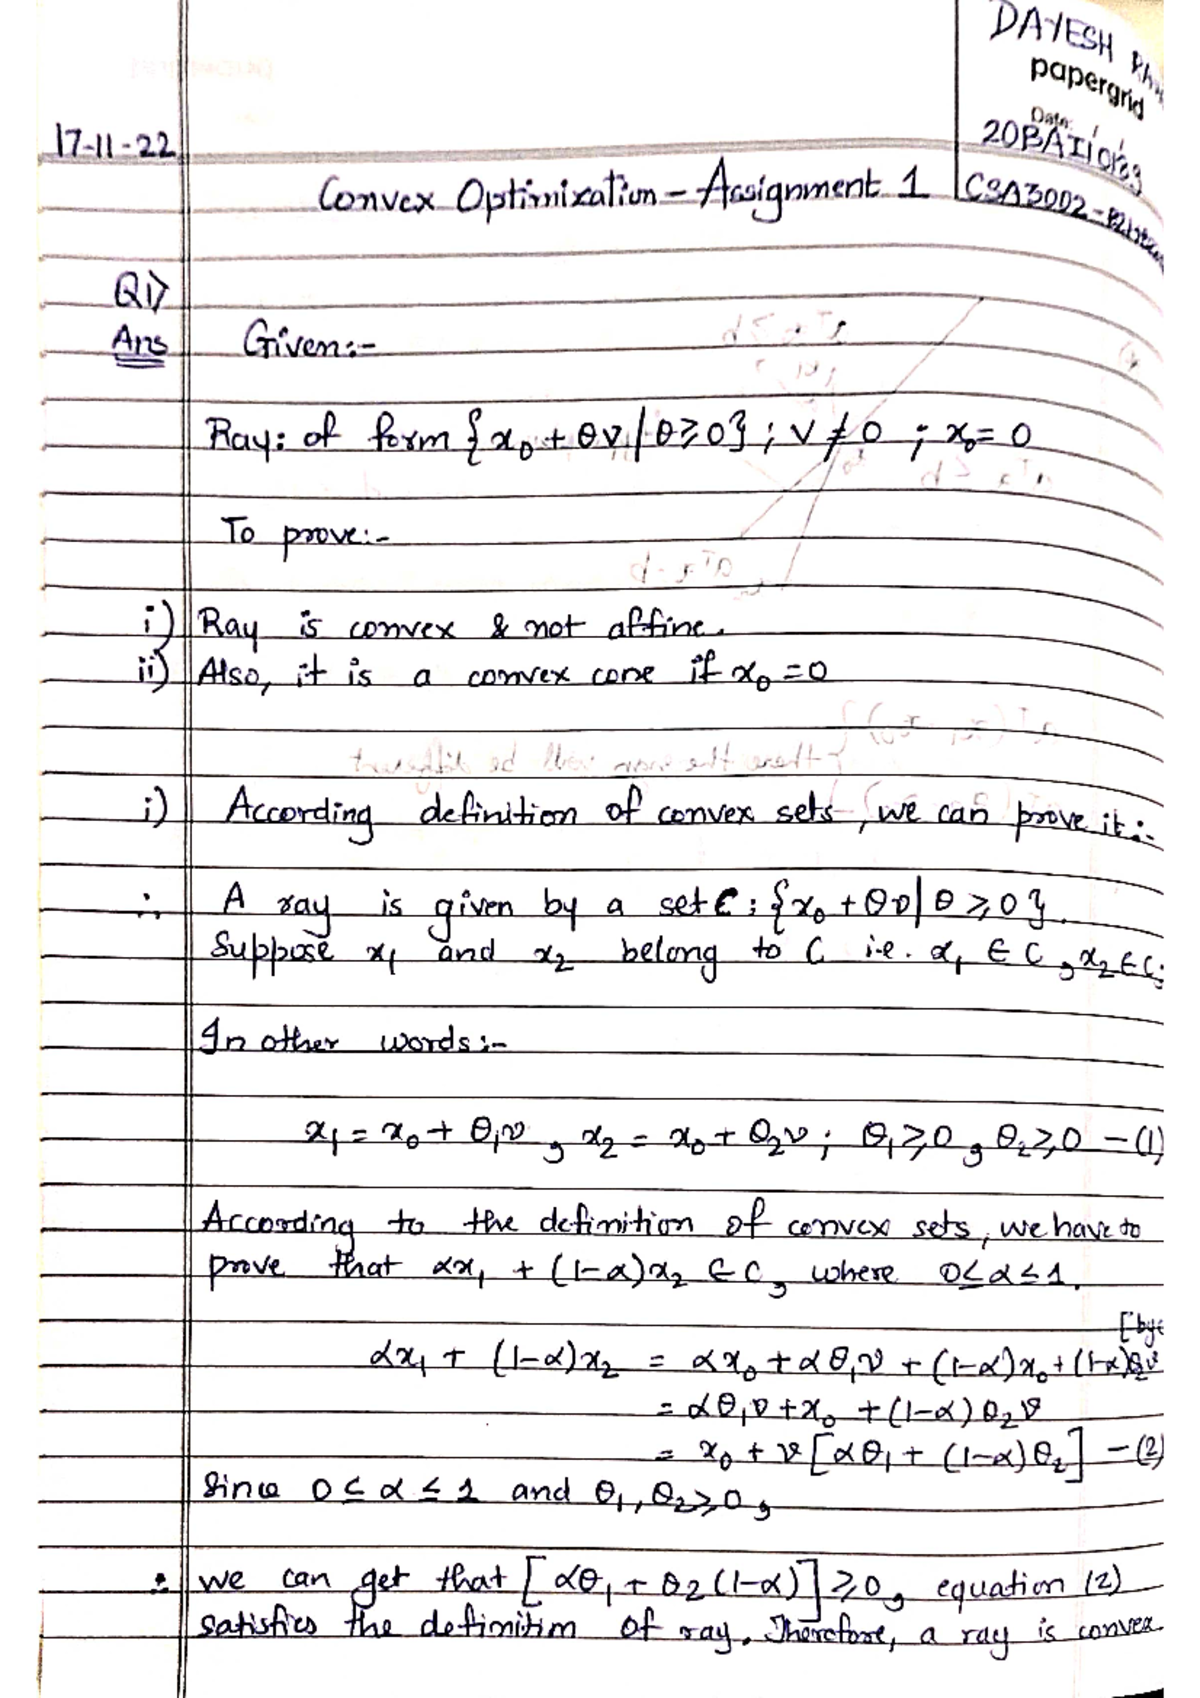 DAYESH
papergrid
Date: / /
17-11-22
CSA3002
Convex Optimization - Assignment 1
Q1>
Ans Given:-
Ray: of form {x₀ + θv | θ≥0} ; v ≠ 0 ; x₀ = 0
To prove:-
i) Ray is convex & not affine.
ii) Also, it is a convex cone if x₀ = 0
i) According definition of convex sets, we can prove it:-
∴ A ray is given by a set C : {x₀ + θv | θ ≥ 0}.
Suppose x₁ and x₂ belong to C i.e. x₁ ∈ C, x₂ ∈ C;
In other words:-
x₁ = x₀ + θ₁v, x₂ = x₀ + θ₂v ; θ₁ ≥ 0, θ₂ ≥ 0 - (1)
According to the definition of convex sets, we have to
prove that αx₁ + (1-α)x₂ ∈ C, where 0 ≤ α ≤ 1.
αx₁ + (1-α)x₂ = αx₀ + αθ₁v + (1-α)x₀ + (1-α)θ₂v
= αθ₁v + x₀ + (1-α)θ₂v
= x₀ + v[αθ₁ + (1-α)θ₂] - (2)
Since 0 ≤ α ≤ 1 and θ₁, θ₂ ≥ 0,
∴ we can get that [αθ₁ + θ₂(1-α)] ≥ 0, equation (2)
satisfies the definition of ray. Therefore, a ray is convex